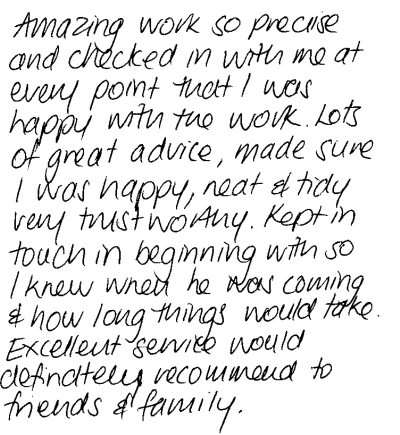 Amazing work so precise
and checked in with me at
every point that I was
happy with the work. Lots
of great advice, made sure
I was happy, neat & tidy
very trustworthy. Kept in
touch in beginning with so
I knew when he was coming
& how long things would take.
Excellent service would
definitely recommend to
friends & family.